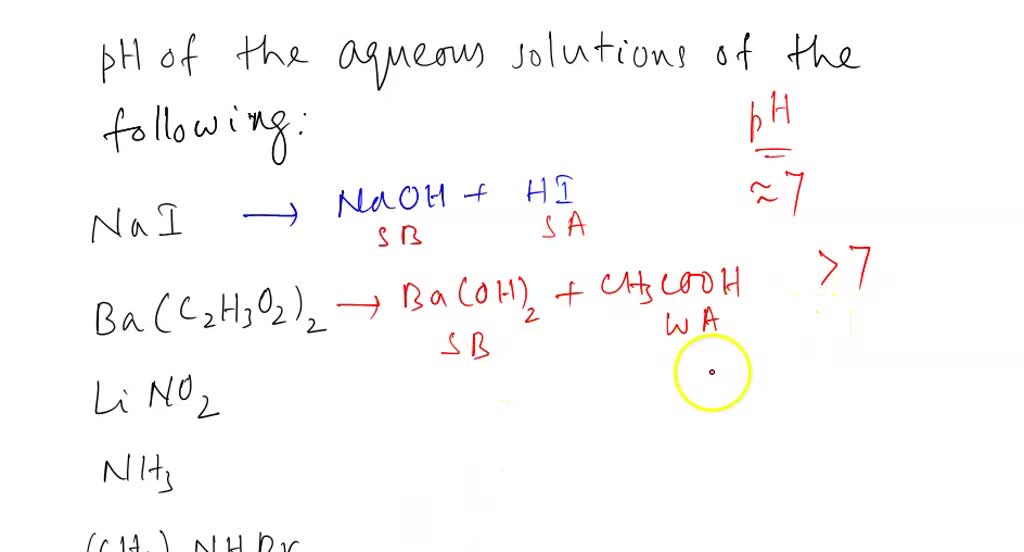 pH of the aqueous solutions of the
following:
pH
NaI → NaOH + HI ≈7
SB SA
Ba(C₂H₃O₂)₂ → Ba(OH)₂ + CH₃COOH >7
SB WA
LiNO₂
NH₃